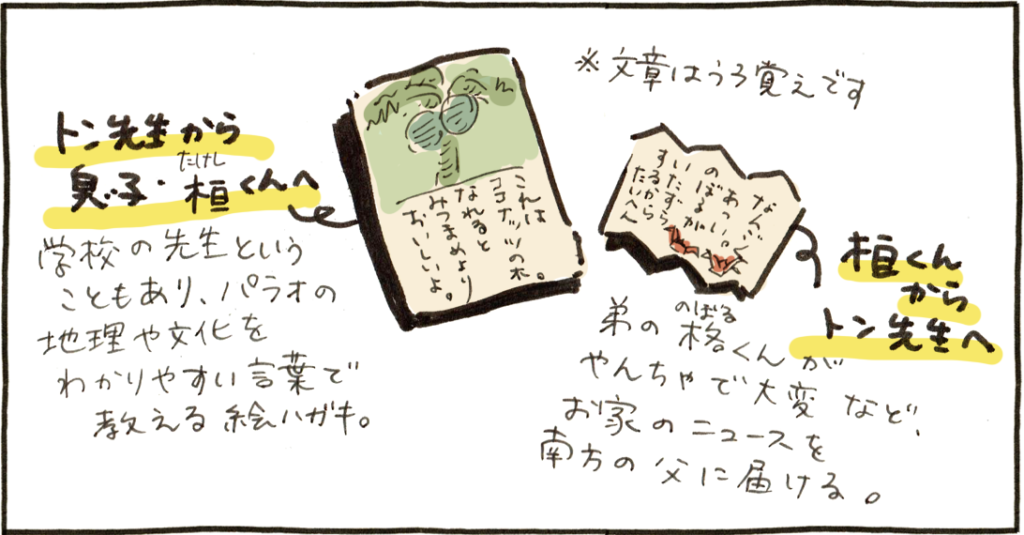 ※文章はうろ覚えです
トン先生から
息子・桓くんへ
たけし
学校の先生という
こともあり、パラオの
地理や文化を
わかりやすい言葉で
教える絵ハガキ。
これは
ココナッツの木。
なれると
みつまめより
おいしいよ。
なんごくて
あっついの。
のぼるが
いたずら
するから
たいへん
桓くん
から
トン先生へ
弟の格くんが
のぼる
やんちゃで大変など、
お家のニュースを
南方の父に届ける。